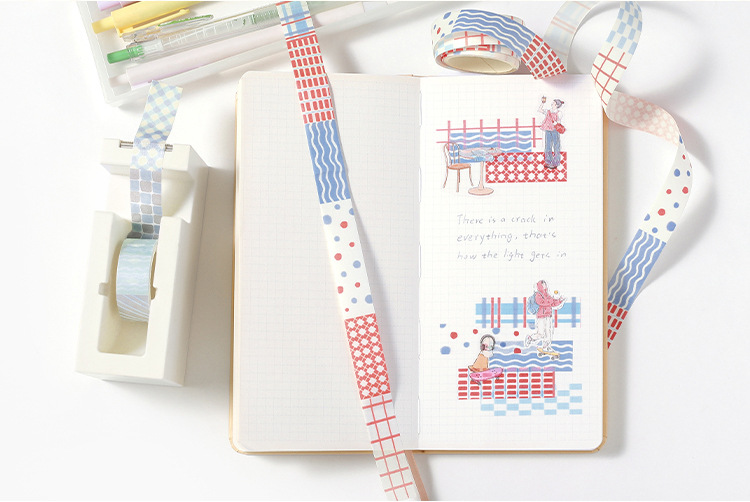 There is a crack in
everything, that's
how the light gets in